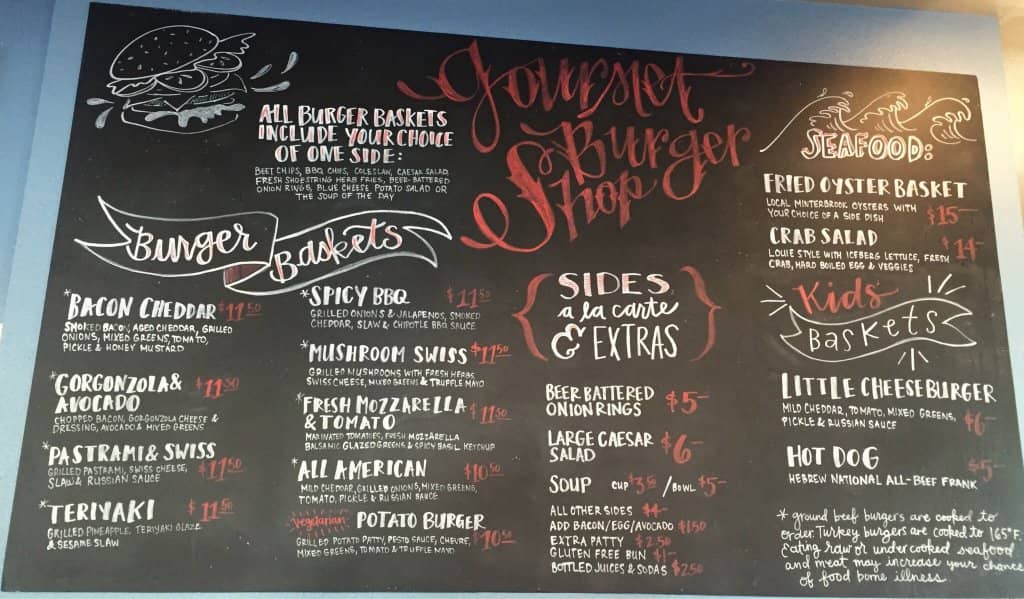 Gourmet
Burger
Shop
ALL BURGER BASKETS
INCLUDE YOUR CHOICE
OF ONE SIDE:
BEET CHIPS, BBQ CHIPS, COLESLAW, CAESAR SALAD,
FRESH SHOESTRING HERB FRIES, BEER-BATTERED
ONION RINGS, BLUE CHEESE POTATO SALAD OR
THE SOUP OF THE DAY
Burger Baskets
*BACON CHEDDAR $11.50
SMOKED BACON, AGED CHEDDAR, GRILLED
ONIONS, MIXED GREENS, TOMATO,
PICKLE & HONEY MUSTARD
*GORGONZOLA &
AVOCADO $11.50
CHOPPED BACON, GORGONZOLA CHEESE &
DRESSING, AVOCADO & MIXED GREENS
*PASTRAMI & SWISS
GRILLED PASTRAMI, SWISS CHEESE, $11.50
SLAW & RUSSIAN SAUCE
*TERIYAKI $11.50
GRILLED PINEAPPLE, TERIYAKI GLAZE
& SESAME SLAW
*SPICY BBQ $11.50
GRILLED ONIONS & JALAPENOS, SMOKED
CHEDDAR, SLAW & CHIPOTLE BBQ SAUCE
*MUSHROOM SWISS $11.50
GRILLED MUSHROOMS WITH FRESH HERBS,
SWISS CHEESE, MIXED GREENS & TRUFFLE MAYO
*FRESH MOZZARELLA
& TOMATO $11.50
MARINATED TOMATOES, FRESH MOZZARELLA
BALSAMIC GLAZED GREENS & SPICY BASIL KETCHUP
*ALL AMERICAN $10.50
MILD CHEDDAR, GRILLED ONIONS, MIXED GREENS,
TOMATO, PICKLE & RUSSIAN SAUCE
Vegetarian POTATO BURGER
GRILLED POTATO PATTY, PESTO SAUCE, CHEVRE, $10.50
MIXED GREENS, TOMATO & TRUFFLE MAYO
SIDES
a la carte
& EXTRAS
BEER BATTERED
ONION RINGS $5-
LARGE CAESAR
SALAD $6-
SOUP CUP $3.50 / BOWL $5-
ALL OTHER SIDES $4-
ADD BACON/EGG/AVOCADO $1.50
EXTRA PATTY $2.50
GLUTEN FREE BUN $1-
BOTTLED JUICES & SODAS $2.50
SEAFOOD:
FRIED OYSTER BASKET
LOCAL MINTERBROOK OYSTERS WITH
YOUR CHOICE OF A SIDE DISH $15-
CRAB SALAD $14-
LOUIE STYLE WITH ICEBERG LETTUCE, FRESH
CRAB, HARD BOILED EGG & VEGGIES
Kids
Baskets
LITTLE CHEESEBURGER
MILD CHEDDAR, TOMATO, MIXED GREENS,
PICKLE & RUSSIAN SAUCE $6-
HOT DOG $5-
HEBREW NATIONAL ALL-BEEF FRANK
* ground beef burgers are cooked to
order. Turkey burgers are cooked to 165°F.
Eating raw or undercooked seafood
and meat may increase your chance
of food borne illness.